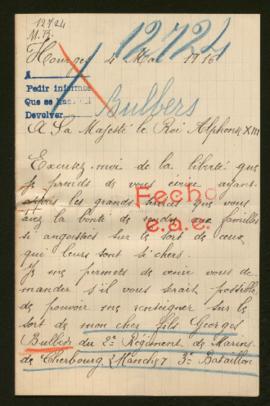 12724
M.B.
12724
Hourges 4 Mai 1916
A
Pedir informes
Que se ha
Devolver
Bulbers
A Sa Majesté le Roi Alphonse XIII
Excusez-moi de la liberté que
je prends de vous écrire ayant
appris les grands services que vous
avez la bonté de rendre aux familles
si angoissées sur le sort de ceux
que leurs sont si chers.
Fecho
c.a.e.
Je me permets de venir vous de-
mander s'il vous serait possible
de pouvoir me renseigner sur le
sort de mon cher fils Georges
Bulbers du 2e Régiment de Marins
de Cherbourg (Manche) 3e Bataillon